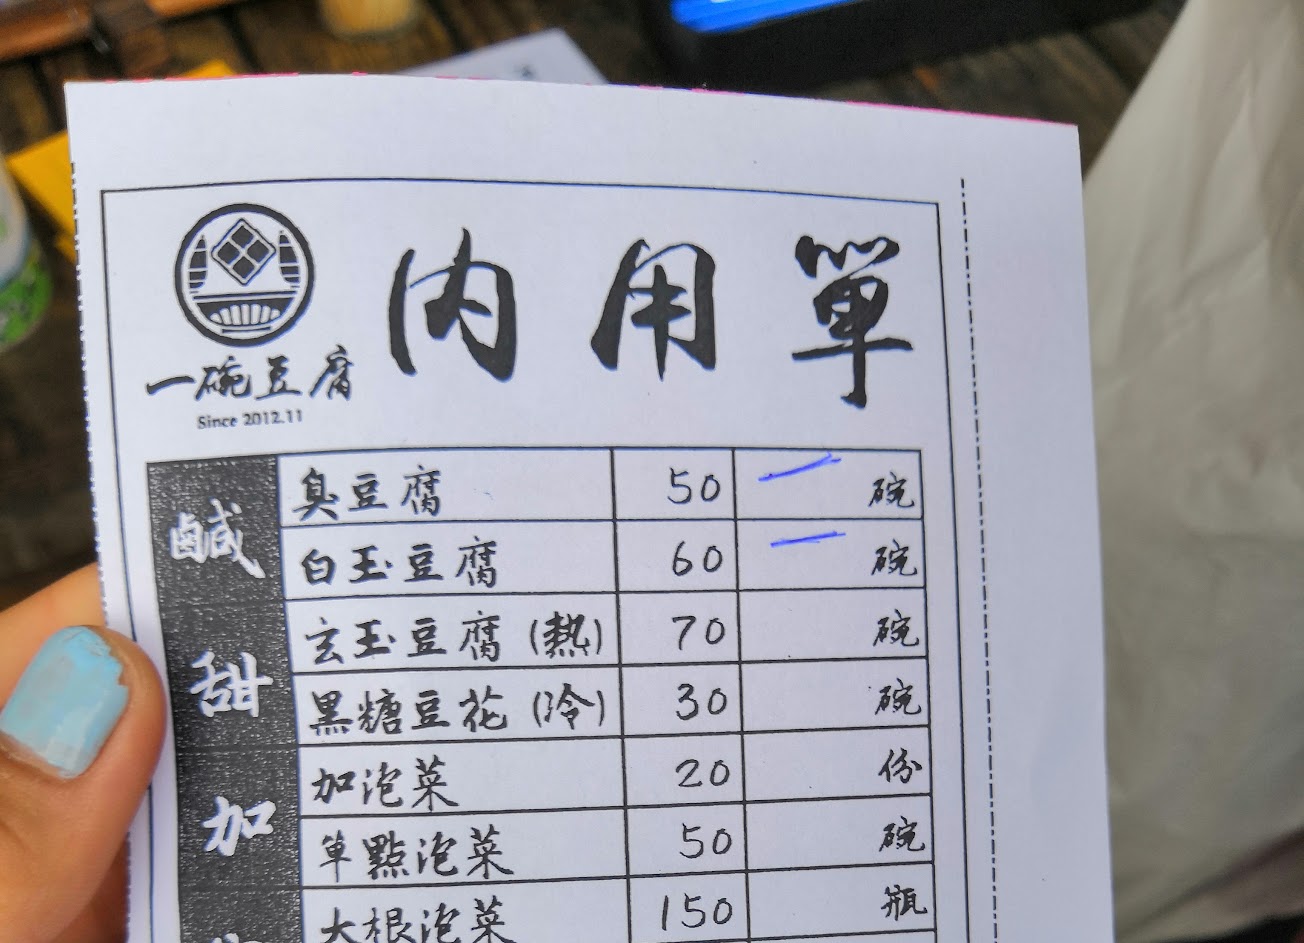 內用單
一碗豆腐
Since 2012.11
鹹
臭豆腐 50 碗
白玉豆腐 60 碗
甜
玄玉豆腐(熱) 70 碗
黑糖豆花(冷) 30 碗
加
加泡菜 20 份
單點泡菜 50 碗
大根泡菜 150 瓶